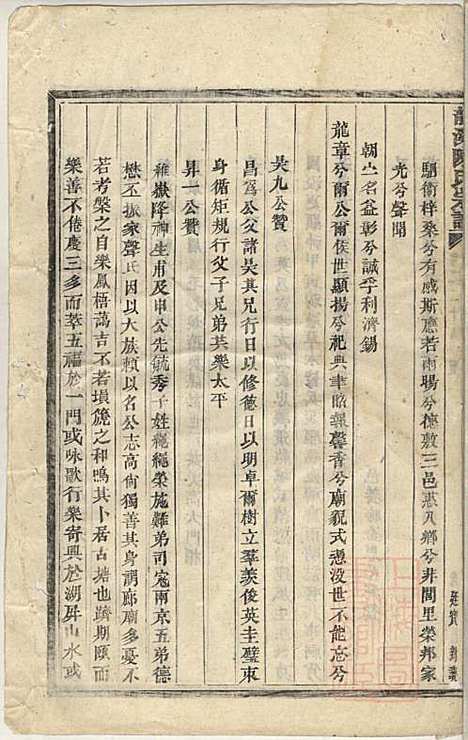 駟衛梓桑兮有感斯應若雨暘兮德敷三邑惠及鄉兮非閭里榮邦家
光兮聲聞
朝
名益彰兮誠孚利濟錫
龍章兮爾公爾侯世顯揚兮祀典聿昭報馨香兮廟貌式憑沒世不能忘兮
吳九公贊
昌爲公父諸吳其兄行日以修德日以明卓爾樹立羣羨俊英圭璧束
身循矩規行父子兄弟共樂太平
昇一公贊
維嶽降神生甫及申公先毓秀子姓繩繩榮施難弟司寇兩京五弟德
懋丕振家聲氏因以大族賴以名公志高尚獨善其身謂廊廟多憂不
若考槃之自樂鳳梧萬吉不若壎篪之和鳴其卜居古塘也躋期頤而
樂善不倦慶三多而萃五福於一門或咏歌行樂寄興於湖昇山水或